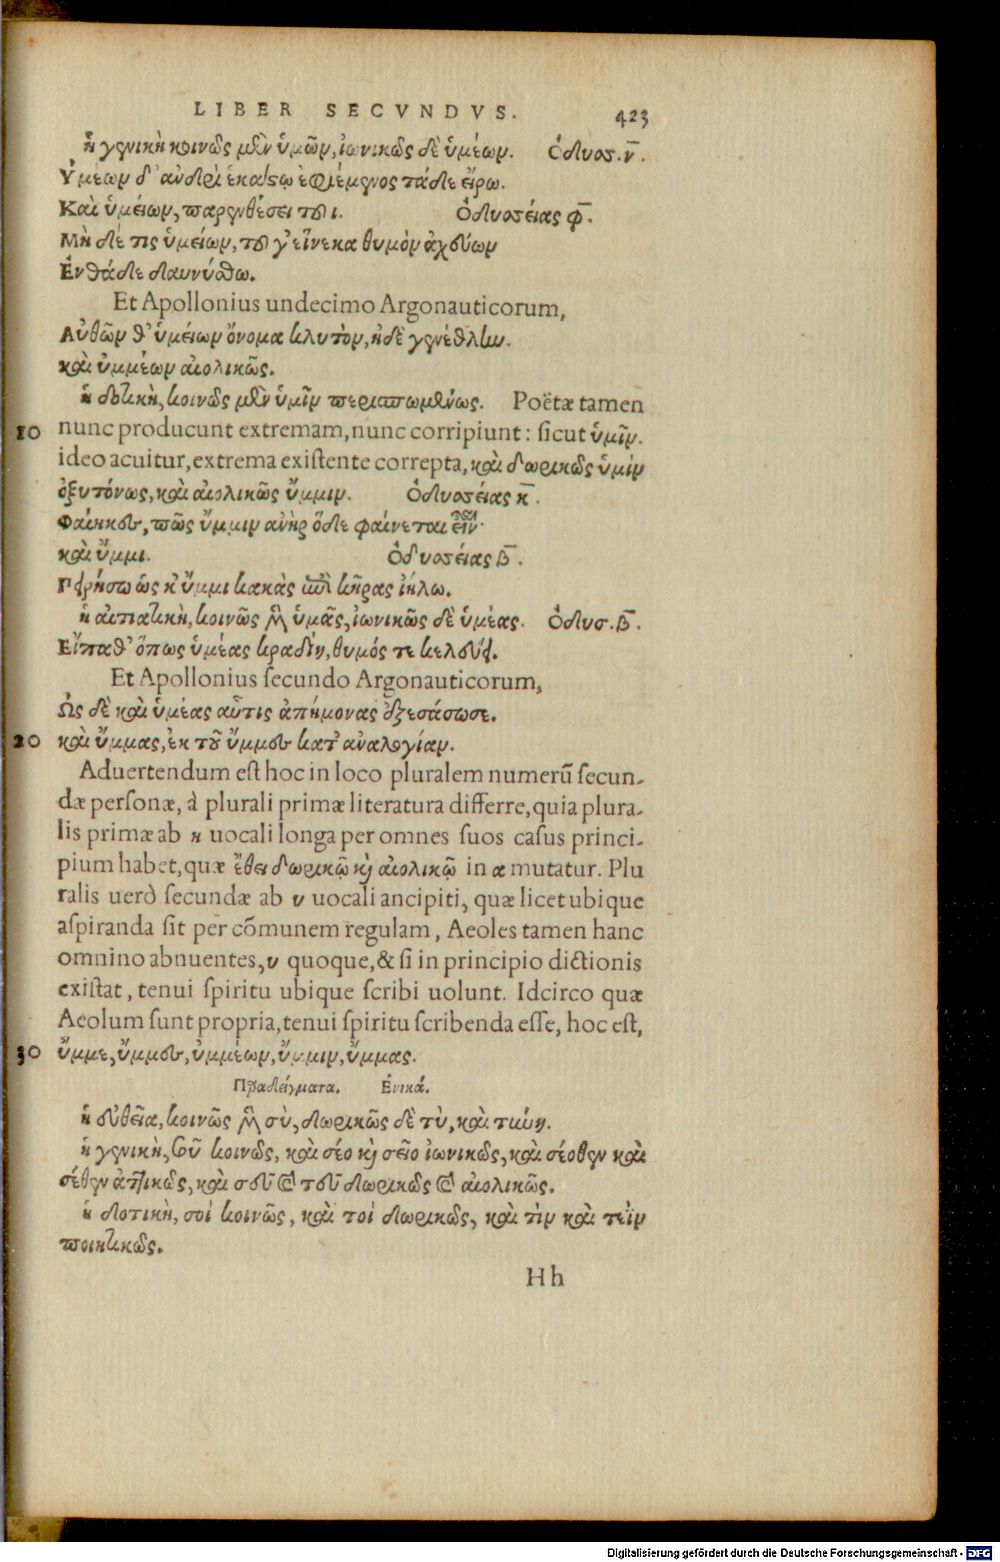 LIBER SECVNDVS. 423
ἡ γενικὴ κοινῶς μὲν ὑμῶν, ἰωνικῶς δὲ ὑμέων. Ὀδυσσ. ν̅.
Ὑμέων δ' ἀνδρὶ ἑκάστῳ ἐφιέμενος τάδε εἴρω.
Καὶ ὑμείων, παρενθέσει τοῦ ι. Ὀδυσσείας φ̅.
Μὴ δέ τις ὑμείων, τοῦ γ' εἵνεκα θυμὸν ἀχεύων
Ἐνθάδε δαινύσθω.
Et Apollonius undecimo Argonauticorum,
Αὐθῶν θ' ὑμείων ὄνομα κλυτὸν, ἠδὲ γενέθλην.
καὶ ὐμμέων αἰολικῶς.
ἡ δοτικὴ, κοινῶς μὲν ὑμῖν περισπωμένως. Poëtæ tamen
10 nunc producunt extremam, nunc corripiunt: sicut ὑμῖν.
ideo acuitur, extrema existente correpta, καὶ δωρικῶς ὑμίν
ὀξυτόνως, καὶ αἰολικῶς ὔμμιν. Ὀδυσσείας κ̅.
Φαίηκες, πῶς ὔμμιν ἀνὴρ ὅδε φαίνεται εἶναι
καὶ ὔμμι. Ὀδυσσείας β̅.
Πειρήσω ὥς κ' ὔμμι κακὰς ἐπὶ κῆρας ἰήλω.
ἡ αἰτιατικὴ, κοινῶς μὲν ὑμᾶς, ἰωνικῶς δὲ ὑμέας. Ὀδυσ. β̅.
Εἴπαθ' ὅπως ὑμέας κραδίη, θυμός τε κελεύει.
Et Apollonius secundo Argonauticorum,
Ὣς δὲ καὶ ὑμέας αὖτις ἀπήμονας ἐξεσάωσε.
20 καὶ ὔμμας, ἐκ τοῦ ὔμμες κατ' ἀναλογίαν.
Aduertendum est hoc in loco pluralem numerũ secun-
dæ personæ, à plurali primæ literatura differre, quia plura-
lis primæ ab η uocali longa per omnes suos casus princi-
pium habet, quæ ἔθει δωρικῷ κὶ αἰολικῷ in α mutatur. Plu
ralis uerò secundæ ab υ uocali ancipiti, quæ licet ubique
aspiranda sit per cõmunem regulam, Aeoles tamen hanc
omnino abnuentes, υ quoque, & si in principio dictionis
existat, tenui spiritu ubique scribi uolunt. Idcirco quæ
Aeolum sunt propria, tenui spiritu scribenda esse, hoc est,
30 ὔμμε, ὔμμες, ὐμμέων, ὔμμιν, ὔμμας.
Παραδείγματα. Ἑνικά.
ἡ εὐθεῖα, κοινῶς μὲν σὺ, δωρικῶς δὲ τὺ, καὶ τύνη.
ἡ γενικὴ, σοῦ κοινῶς, καὶ σέο καὶ σεῖο ἰωνικῶς, καὶ σέοθεν καὶ
σέθεν ἀττικῶς, καὶ σεῦ καὶ τεῦ δωρικῶς καὶ αἰολικῶς.
ἡ δοτικὴ, σοί κοινῶς, καὶ τοί δωρικῶς, καὶ τὶν καὶ τεῒν
ποιητικῶς.
Hh
Digitalisierung gefördert durch die Deutsche Forschungsgemeinschaft - DFG